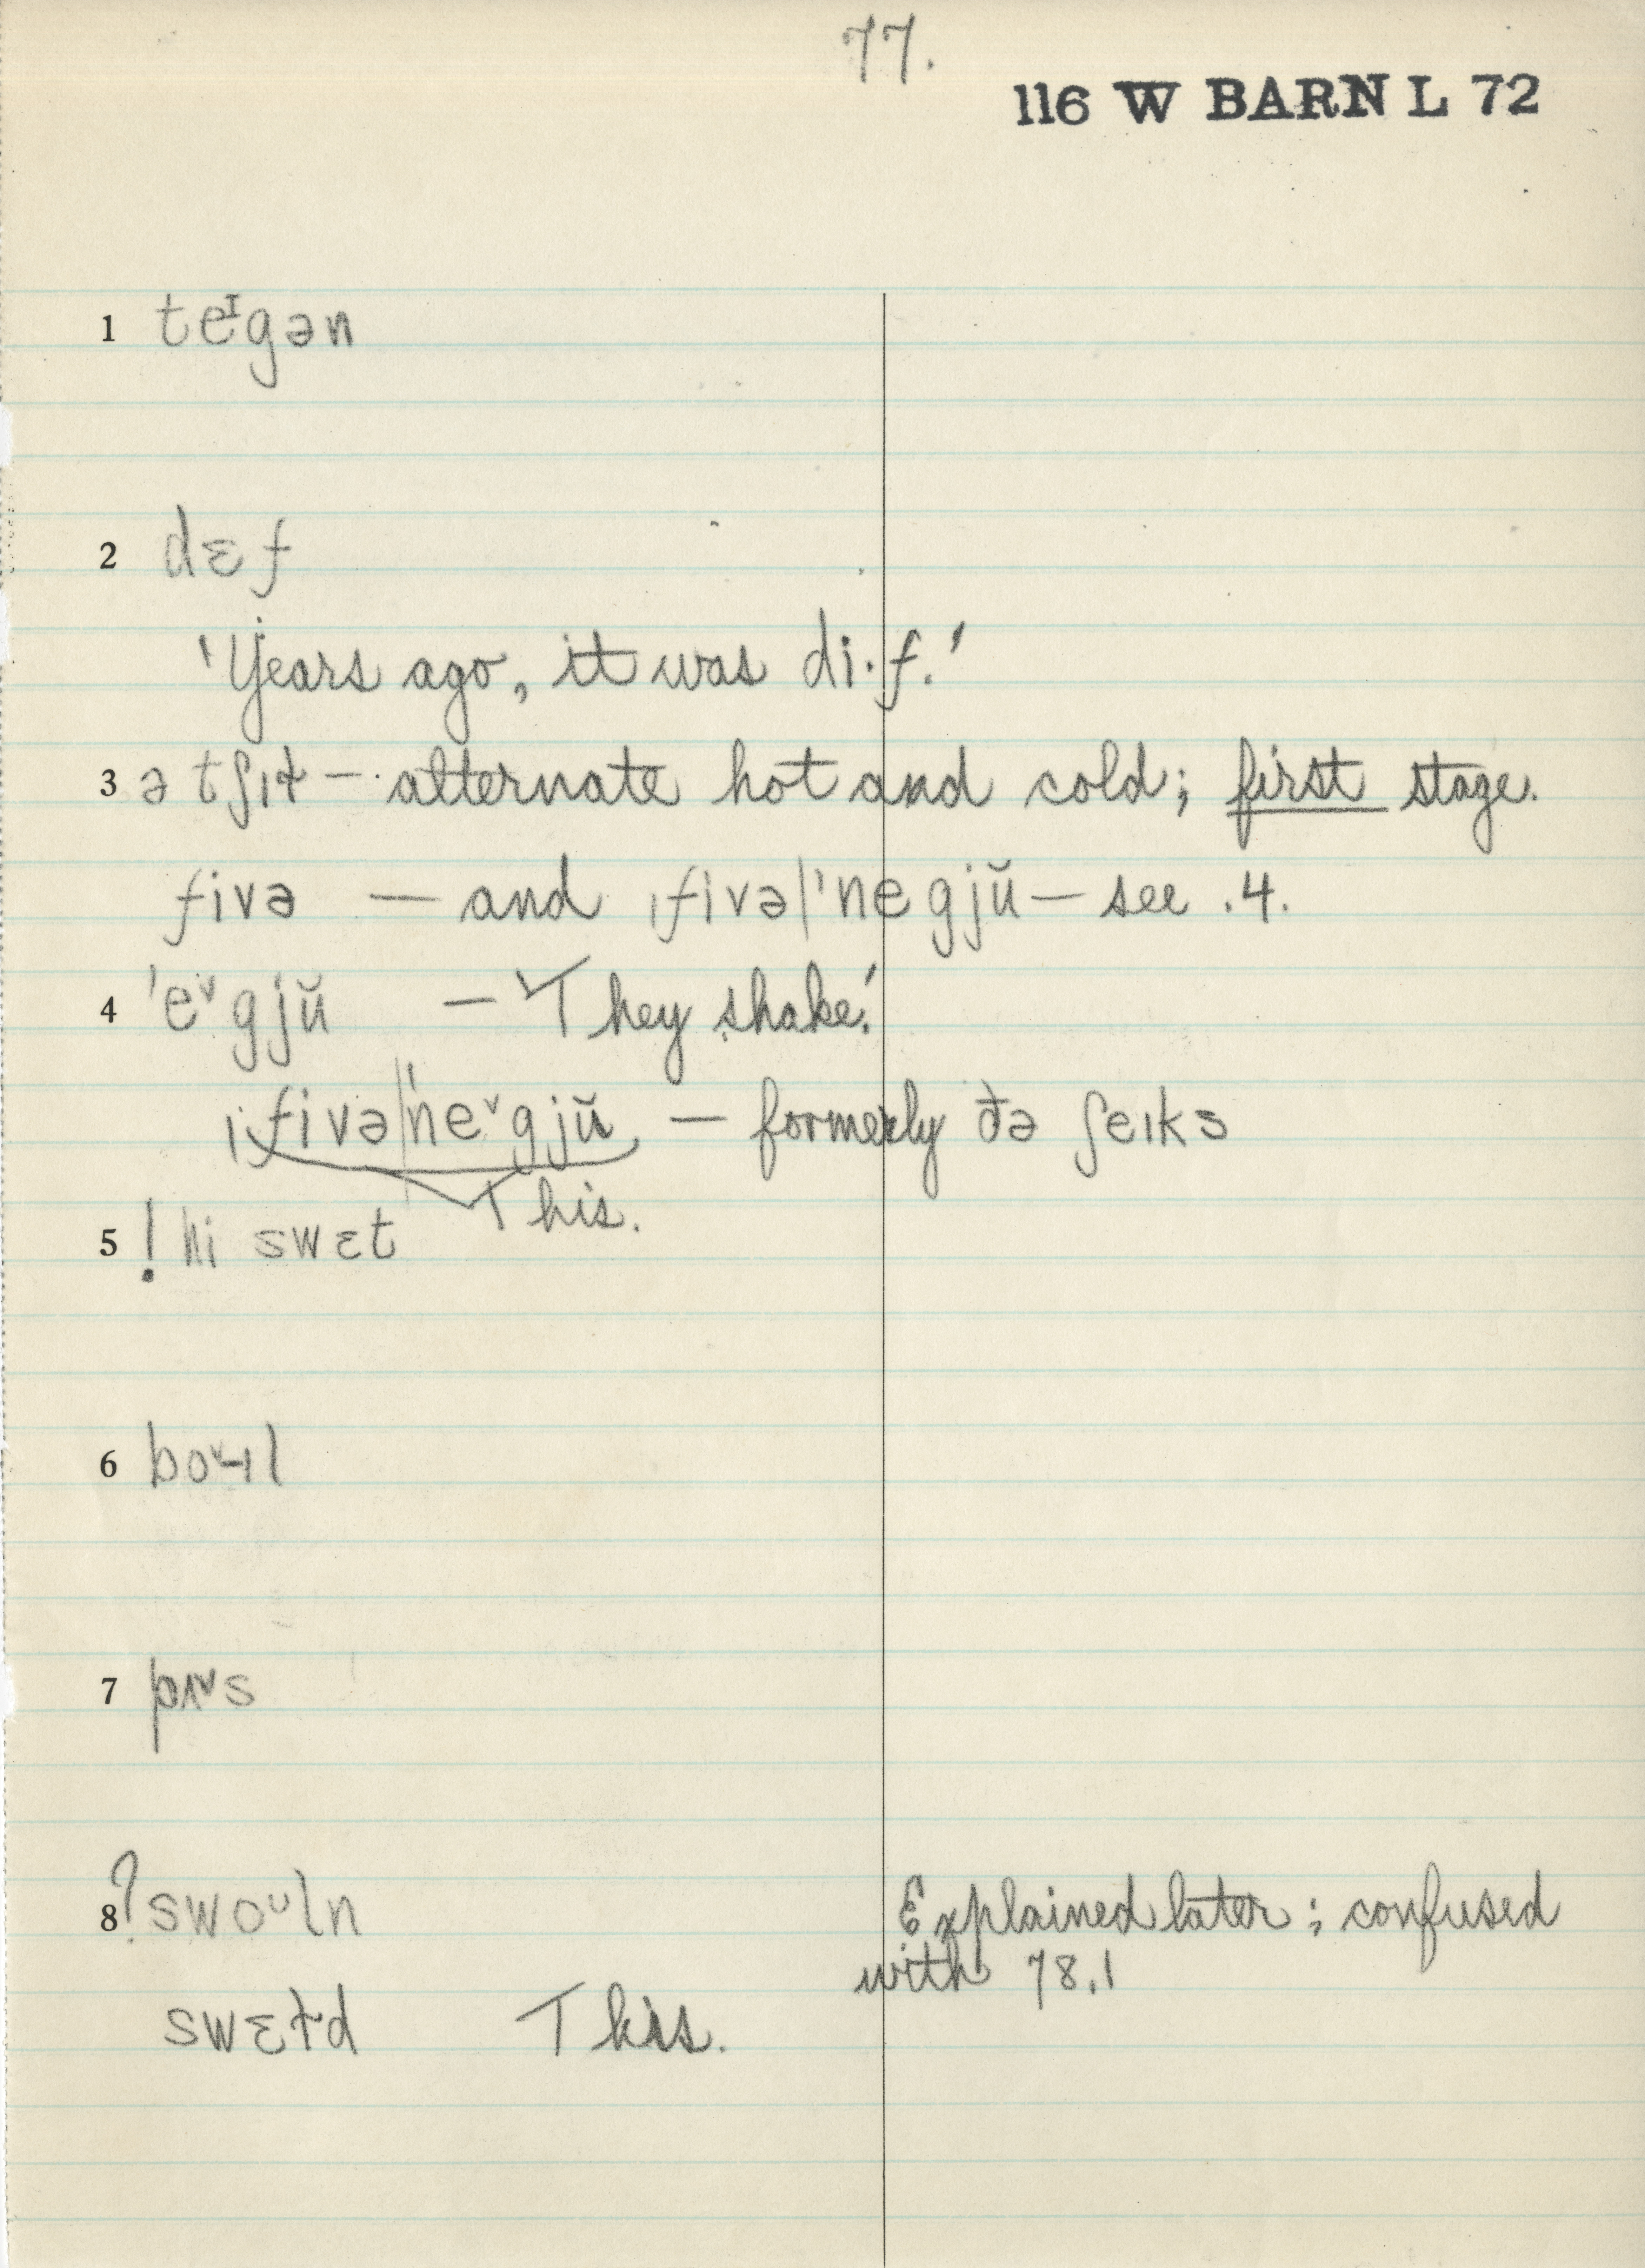 77.
116 W BARN L 72
1 teᴵgən
2 dɛf
'Years ago, it was di·f.'
3 ə tʃɪɫ – alternate hot and cold; first stage.
fivə — and ˌfivə|ˈnegjŭ — see .4.
4 ˈe˅gjŭ — 'They shake.'
ˌfivə|ˈne˅gjŭ — formerly ðə ʃeɪks
This.
5 ! hi swɛt
6 bo˅ɪl
7 pʌ˅s
8 ? swoᵘln Explained later; confused
with 78.1
swɛɫd This.